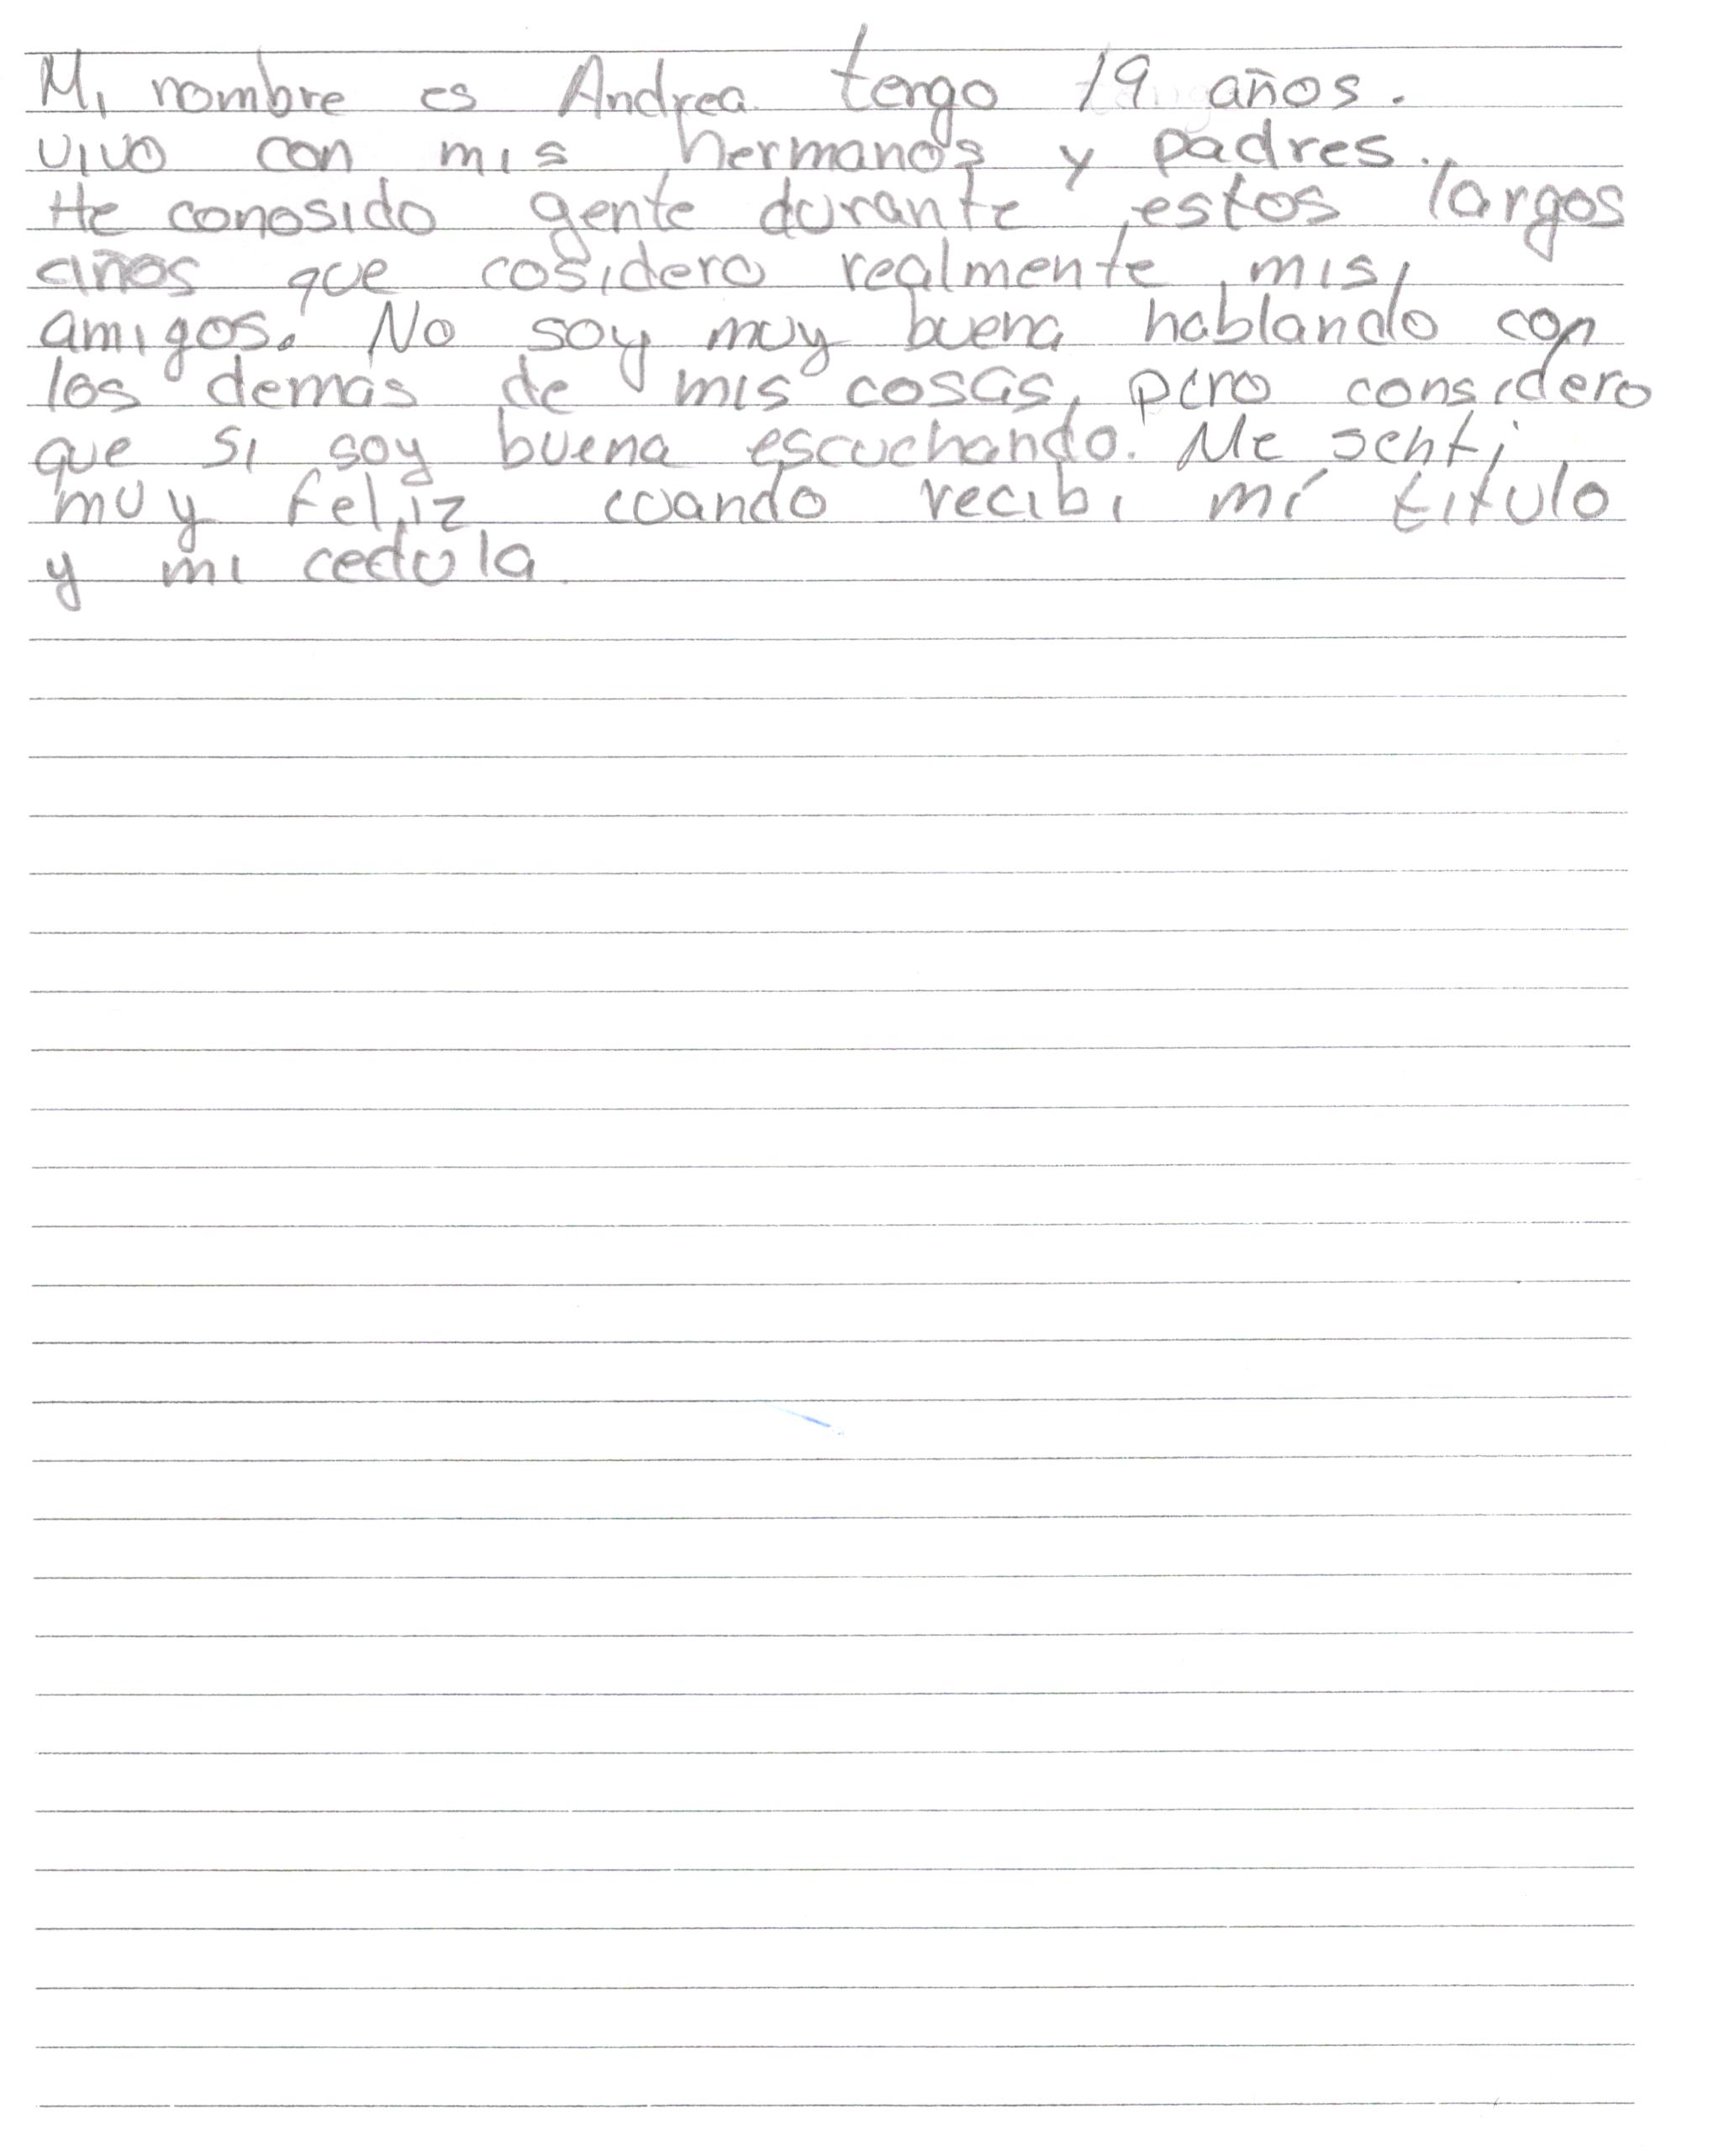 Mi nombre es Andrea tengo 19 años.
vivo con mis hermanos y padres.
He conosido gente durante estos largos
años que cosidero realmente mis
amigos. No soy muy buena hablando con
los demás de mis cosas, pero considero
que si soy buena escuchando. Me senti
muy feliz cuando recibi mi titulo
y mi cedula